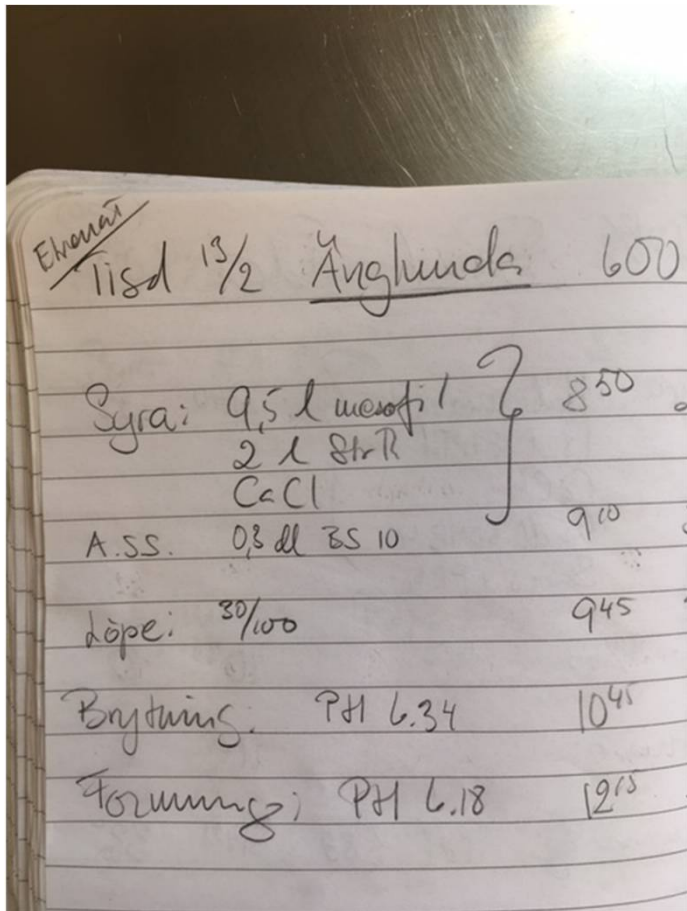 Tisd 13/2 Änglunda 600
Syra: 9,5 l mesofil 8 50
2 l Str R
CaCl
A.SS. 0,3 dl BS 10 9 10
Löpe: 30/100 9 45
Brytning. PH 6.34 10 45
Formning; PH 6.18 12 15